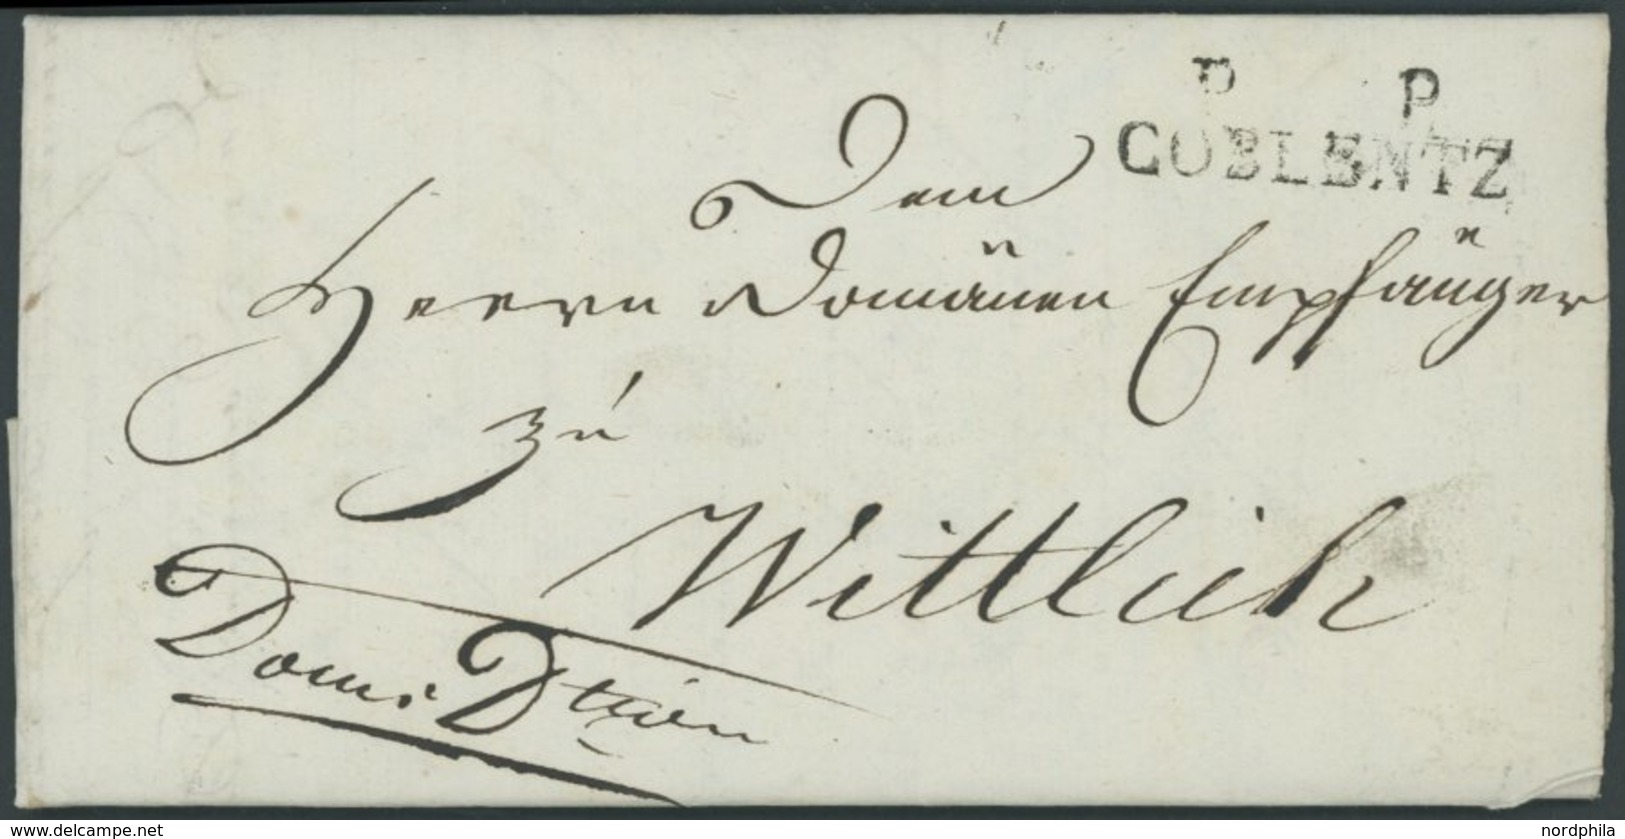 P P
COBLENTZ
Dem
Herrn Domänen Empfänger
zu
Wittlich
Dom: Dtion
www.delcampe.net
nordphila